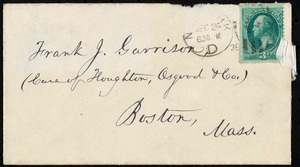 Frank J. Garrison
(Care of Houghton, Osgood & Co.)
Boston,
Mass.